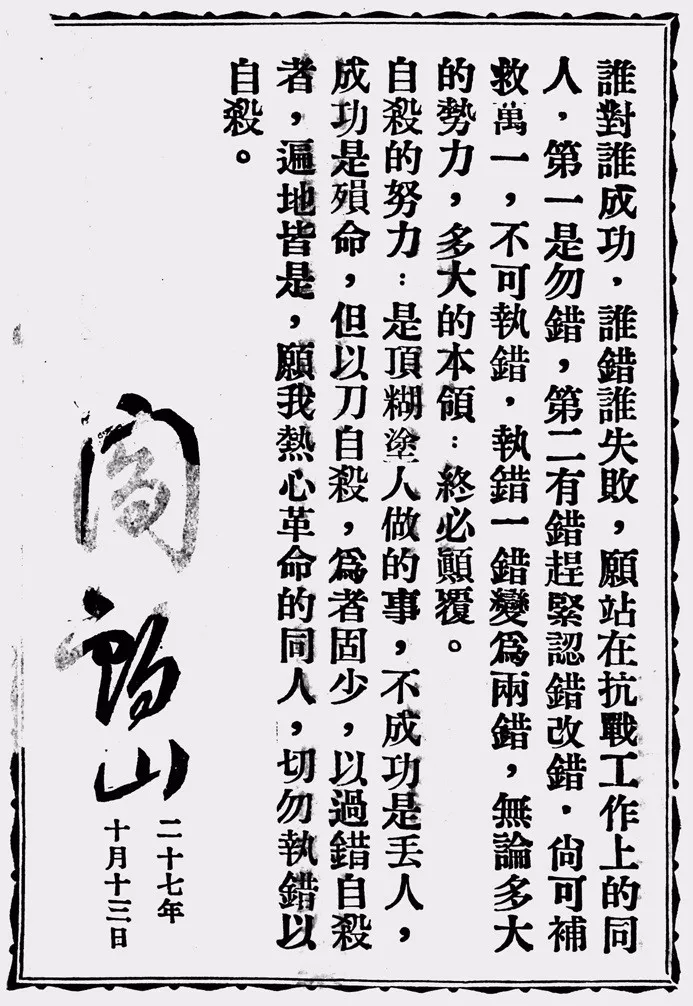 誰對誰成功．誰錯誰失敗，願站在抗戰工作上的同
人．第一是勿錯，第二有錯趕緊認錯改錯．尙可補
救萬一，不可執錯．執錯一錯變爲兩錯，無論多大
的勢力，多大的本領：終必顚覆。
自殺的努力：是頂糊塗人做的事，不成功是丟人，
成功是殞命，但以刀自殺，爲者固少，以過錯自殺
者，遍地皆是，願我熱心革命的同人，切勿執錯以
自殺。
閻錫山
二十七年
十月十三日